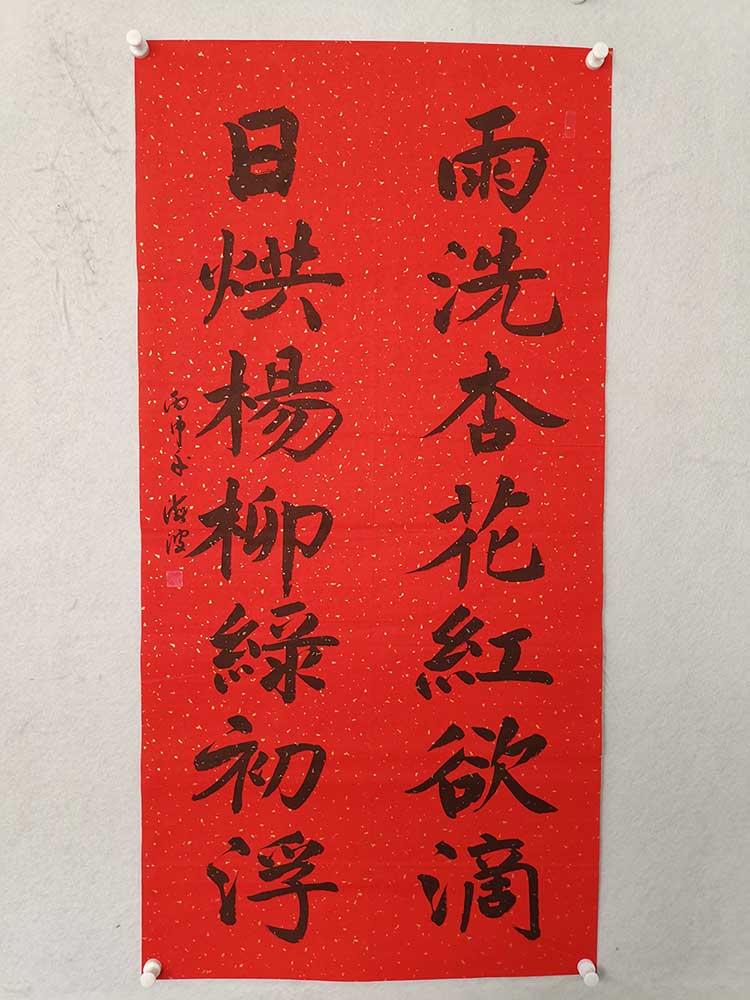 雨洗杏花紅欲滴
日烘楊柳綠初浮
丙申年 海波